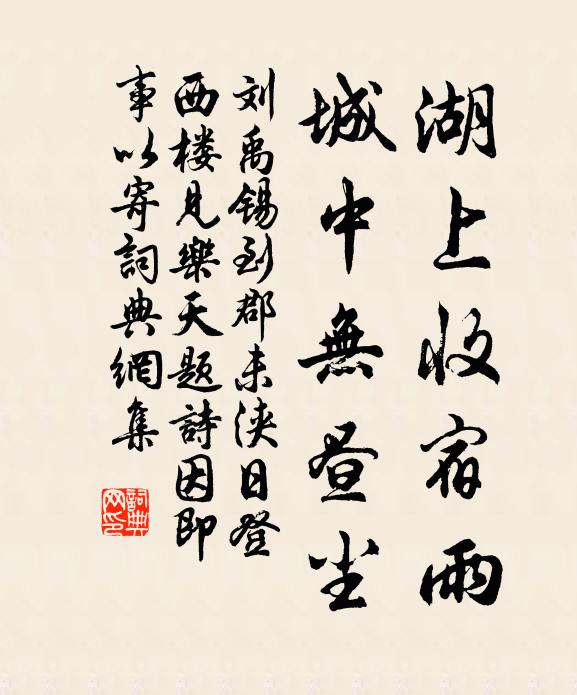 湖上收宿雨
城中無昼尘
刘禹锡到郡未浹日登
西楼見樂天題詩因即
事以寄詞典網集
詞典网印